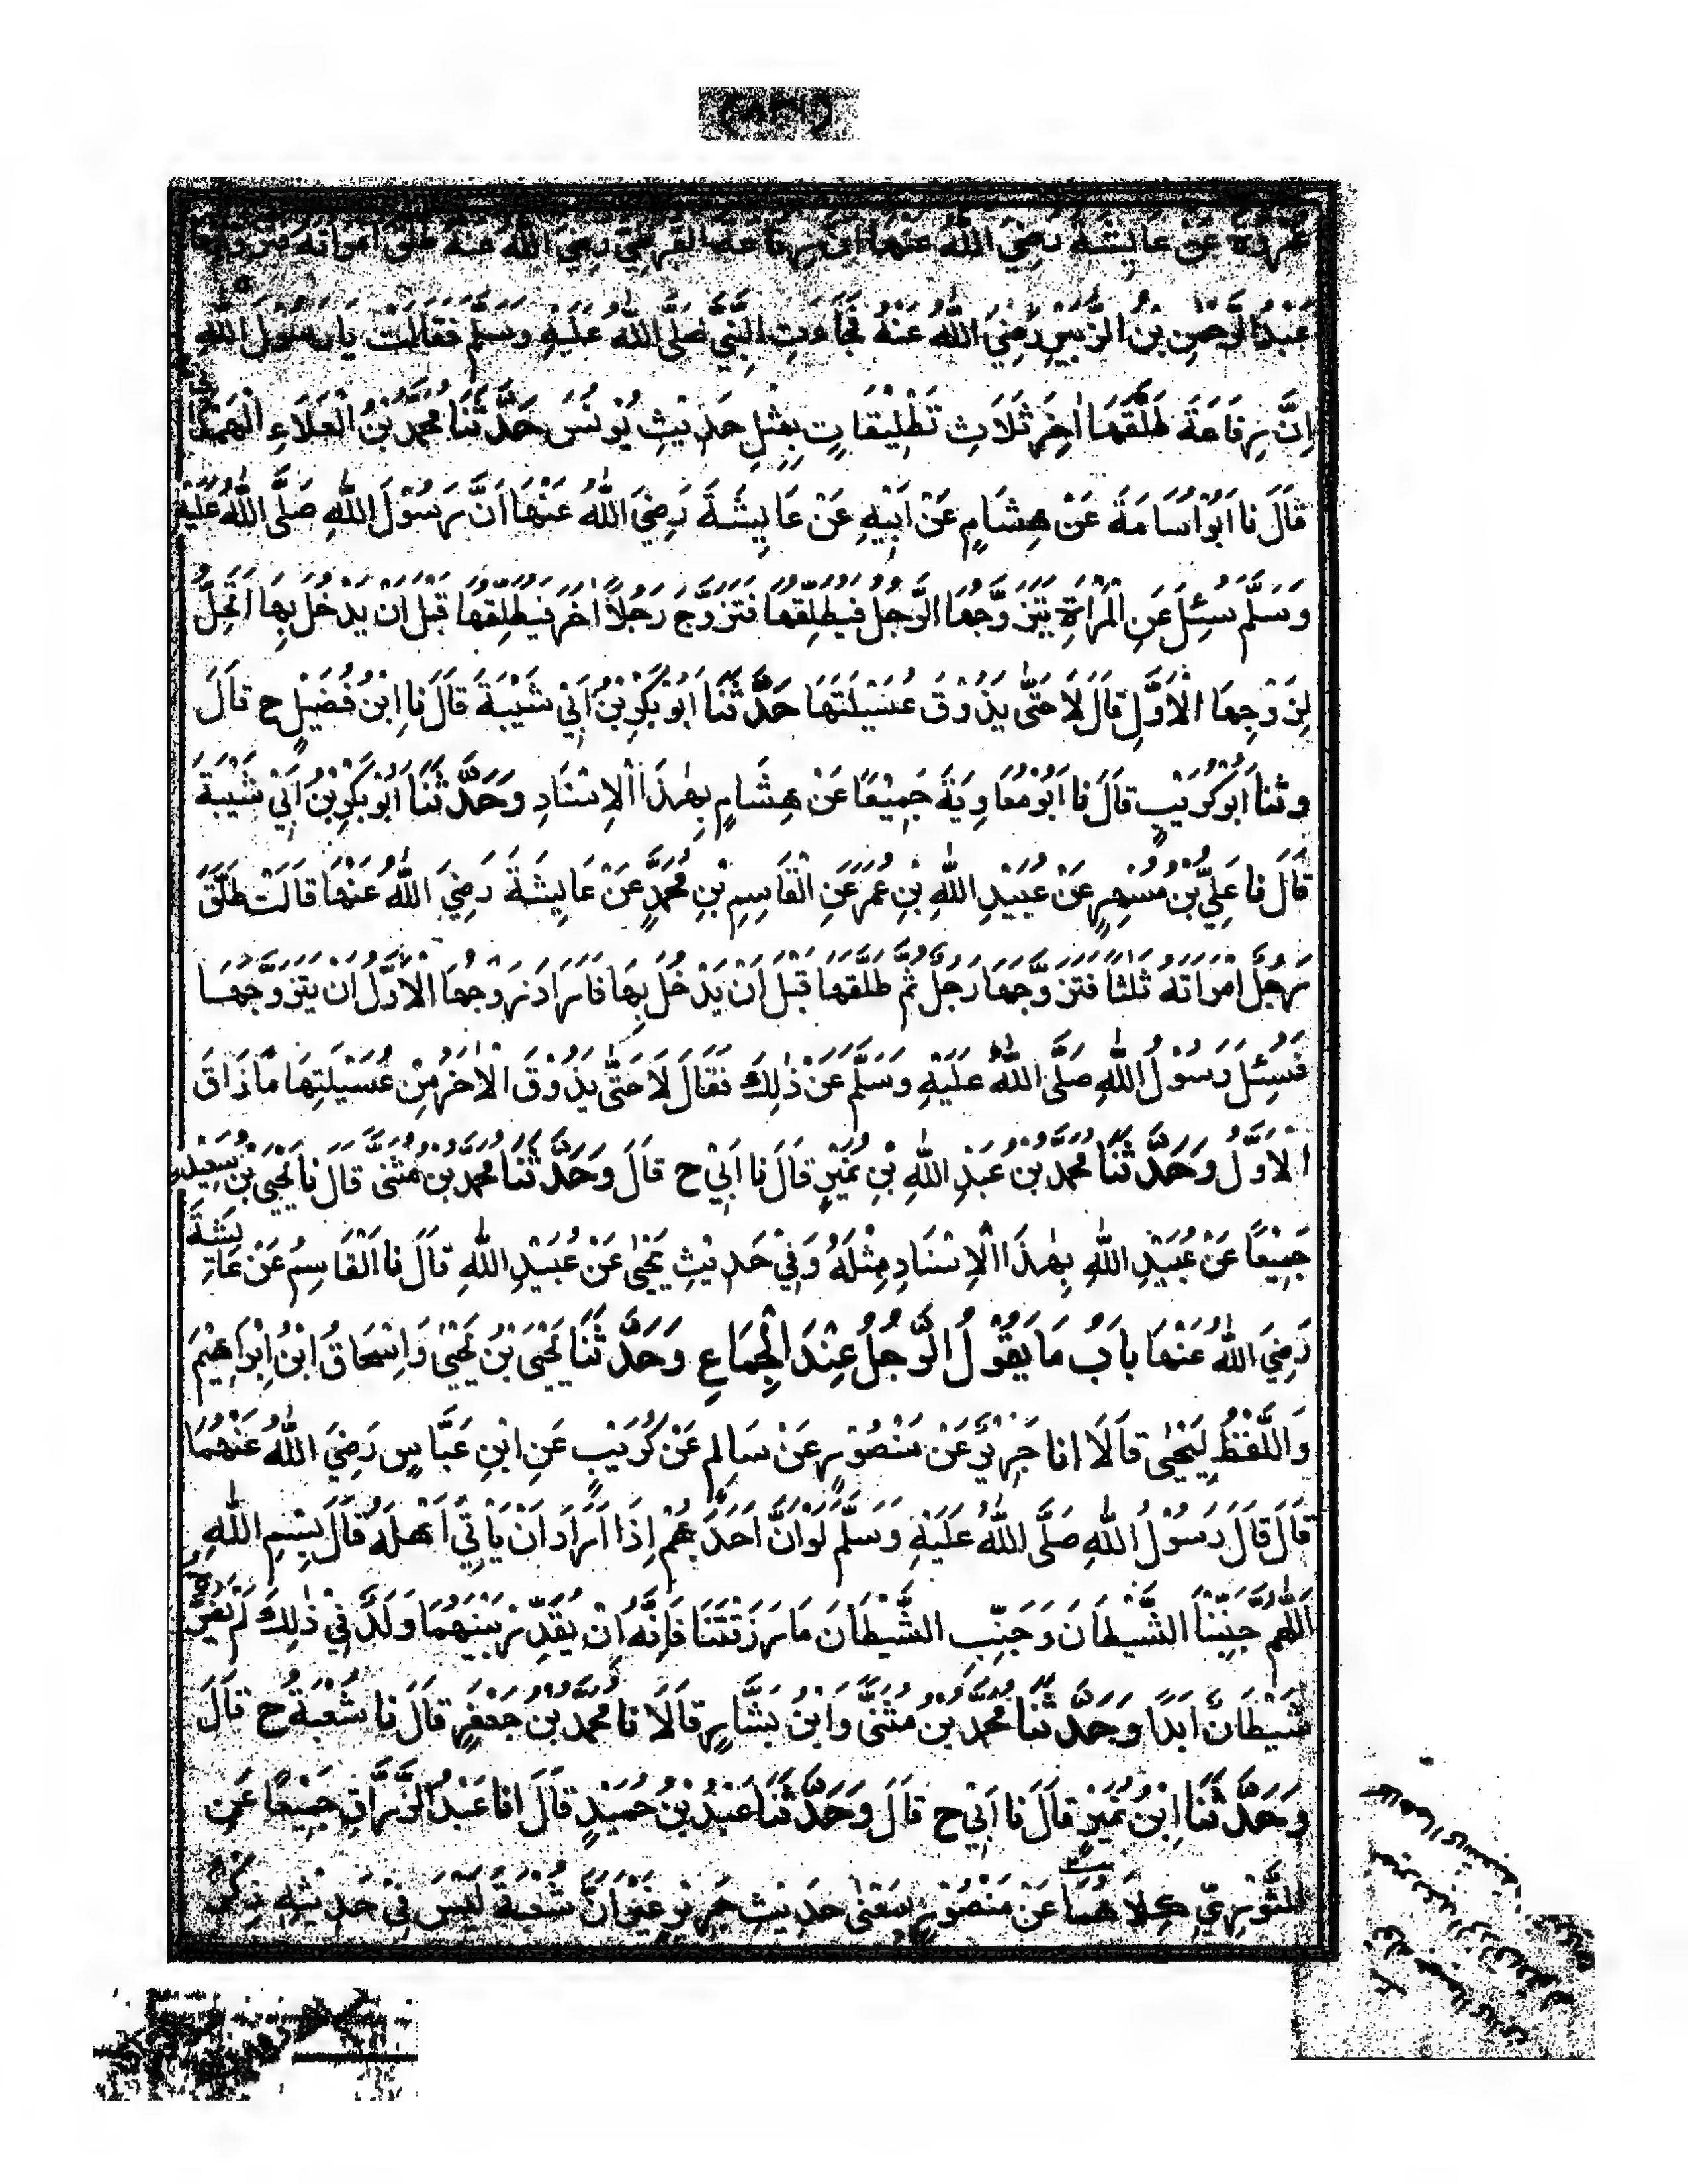 عُرْوَةَ عَنْ عَايِشَةَ رَضِيَ اللّٰهُ عَنْهَا اَنَّ رِفَاعَةَ الْقُرَظِيَّ رَضِيَ اللّٰهُ عَنْهُ طَلَّقَ امْرَاَتَهُ فَتَزَوَّجَهَا
عَبْدُ الرَّحْمٰنِ بْنُ الزَّبِيْرِ رَضِيَ اللّٰهُ عَنْهُ فَجَاءَتِ النَّبِيَّ صَلَّى اللّٰهُ عَلَيْهِ وَسَلَّمَ فَقَالَتْ يَارَسُوْلَ اللّٰهِ
اِنَّ رِفَاعَةَ طَلَّقَهَا اٰخِرَ ثَلَاثِ تَطْلِيْقَاتٍ بِمِثْلِ حَدِيْثِ يُوْنُسَ حَدَّثَنَا مُحَمَّدُ بْنُ الْعَلَاءِ الْهَمْدَانِيُّ
قَالَ نَا اَبُوْ اُسَامَةَ عَنْ هِشَامٍ عَنْ اَبِيْهِ عَنْ عَايِشَةَ رَضِيَ اللّٰهُ عَنْهَا اَنَّ رَسُوْلَ اللّٰهِ صَلَّى اللّٰهُ عَلَيْهِ
وَسَلَّمَ سُئِلَ عَنِ الْمَرْاَةِ يَتَزَوَّجُهَا الرَّجُلُ فَيُطَلِّقُهَا فَتَزَوَّجَ رَجُلًا اٰخَرَ فَيُطَلِّقُهَا قَبْلَ اَنْ يَدْخُلَ بِهَا اَتَحِلُّ
لِزَوْجِهَا الْاَوَّلِ قَالَ لَا حَتّٰى يَذُوْقَ عُسَيْلَتَهَا حَدَّثَنَا اَبُوْ بَكْرِ بْنُ اَبِيْ شَيْبَةَ قَالَ نَا ابْنُ فُضَيْلٍ ح قَالَ
وَثَنَا اَبُوْ كُرَيْبٍ قَالَ نَا اَبُوْ مُعَاوِيَةَ جَمِيْعًا عَنْ هِشَامٍ بِهٰذَا الْاِسْنَادِ وَحَدَّثَنَا اَبُوْ بَكْرِ بْنُ اَبِيْ شَيْبَةَ
قَالَ نَا عَلِيُّ بْنُ مُسْهِرٍ عَنْ عُبَيْدِ اللّٰهِ بْنِ عُمَرَ عَنِ الْقَاسِمِ بْنِ مُحَمَّدٍ عَنْ عَايِشَةَ رَضِيَ اللّٰهُ عَنْهَا قَالَتْ طَلَّقَ
رَجُلٌ امْرَاَتَهُ ثَلٰثًا فَتَزَوَّجَهَا رَجُلٌ ثُمَّ طَلَّقَهَا قَبْلَ اَنْ يَدْخُلَ بِهَا فَاَرَادَ زَوْجُهَا الْاَوَّلُ اَنْ يَتَزَوَّجَهَا
فَسُئِلَ رَسُوْلُ اللّٰهِ صَلَّى اللّٰهُ عَلَيْهِ وَسَلَّمَ عَنْ ذٰلِكَ فَقَالَ لَا حَتّٰى يَذُوْقَ الْاٰخَرُ مِنْ عُسَيْلَتِهَا مَا ذَاقَ
الْاَوَّلُ وَحَدَّثَنَا مُحَمَّدُ بْنُ عَبْدِ اللّٰهِ بْنِ نُمَيْرٍ قَالَ نَا اَبِيْ ح قَالَ وَحَدَّثَنَا مُحَمَّدُ بْنُ مُثَنّٰى قَالَ نَا يَحْيَى بْنُ سَعِيْدٍ
جَمِيْعًا عَنْ عُبَيْدِ اللّٰهِ بِهٰذَا الْاِسْنَادِ مِثْلَهُ وَفِيْ حَدِيْثِ يَحْيٰى عَنْ عُبَيْدِ اللّٰهِ قَالَ نَا الْقَاسِمُ عَنْ عَايِشَةَ
رَضِيَ اللّٰهُ عَنْهَا بَابُ مَا يَقُوْلُ الرَّجُلُ عِنْدَ الْجِمَاعِ وَحَدَّثَنَا يَحْيَى بْنُ يَحْيٰى وَاِسْحَاقُ ابْنُ اِبْرَاهِيْمَ
وَاللَّفْظُ لِيَحْيٰى قَالَا اَنَا جَرِيْرٌ عَنْ مَنْصُوْرٍ عَنْ سَالِمٍ عَنْ كُرَيْبٍ عَنِ ابْنِ عَبَّاسٍ رَضِيَ اللّٰهُ عَنْهُمَا
قَالَ قَالَ رَسُوْلُ اللّٰهِ صَلَّى اللّٰهُ عَلَيْهِ وَسَلَّمَ لَوْ اَنَّ اَحَدَهُمْ اِذَا اَرَادَ اَنْ يَاْتِيَ اَهْلَهُ قَالَ بِسْمِ اللّٰهِ
اَللّٰهُمَّ جَنِّبْنَا الشَّيْطَانَ وَجَنِّبِ الشَّيْطَانَ مَا رَزَقْتَنَا فَاِنَّهُ اِنْ يُقَدَّرْ بَيْنَهُمَا وَلَدٌ فِيْ ذٰلِكَ لَمْ يَضُرَّهُ
شَيْطَانٌ اَبَدًا وَحَدَّثَنَا مُحَمَّدُ بْنُ مُثَنّٰى وَابْنُ بَشَّارٍ قَالَا نَا مُحَمَّدُ بْنُ جَعْفَرٍ قَالَ نَا شُعْبَةُ ح قَالَ
وَحَدَّثَنَا ابْنُ نُمَيْرٍ قَالَ نَا اَبِيْ ح قَالَ وَحَدَّثَنَا عَبْدُ بْنُ حُمَيْدٍ قَالَ اَنَا عَبْدُ الرَّزَّاقِ جَمِيْعًا عَنِ
الثَّوْرِيِّ كِلَاهُمَا عَنْ مَنْصُوْرٍ بِمَعْنٰى حَدِيْثِ جَرِيْرٍ غَيْرَ اَنَّ شُعْبَةَ لَيْسَ فِيْ حَدِيْثِهِ ذِكْرُ